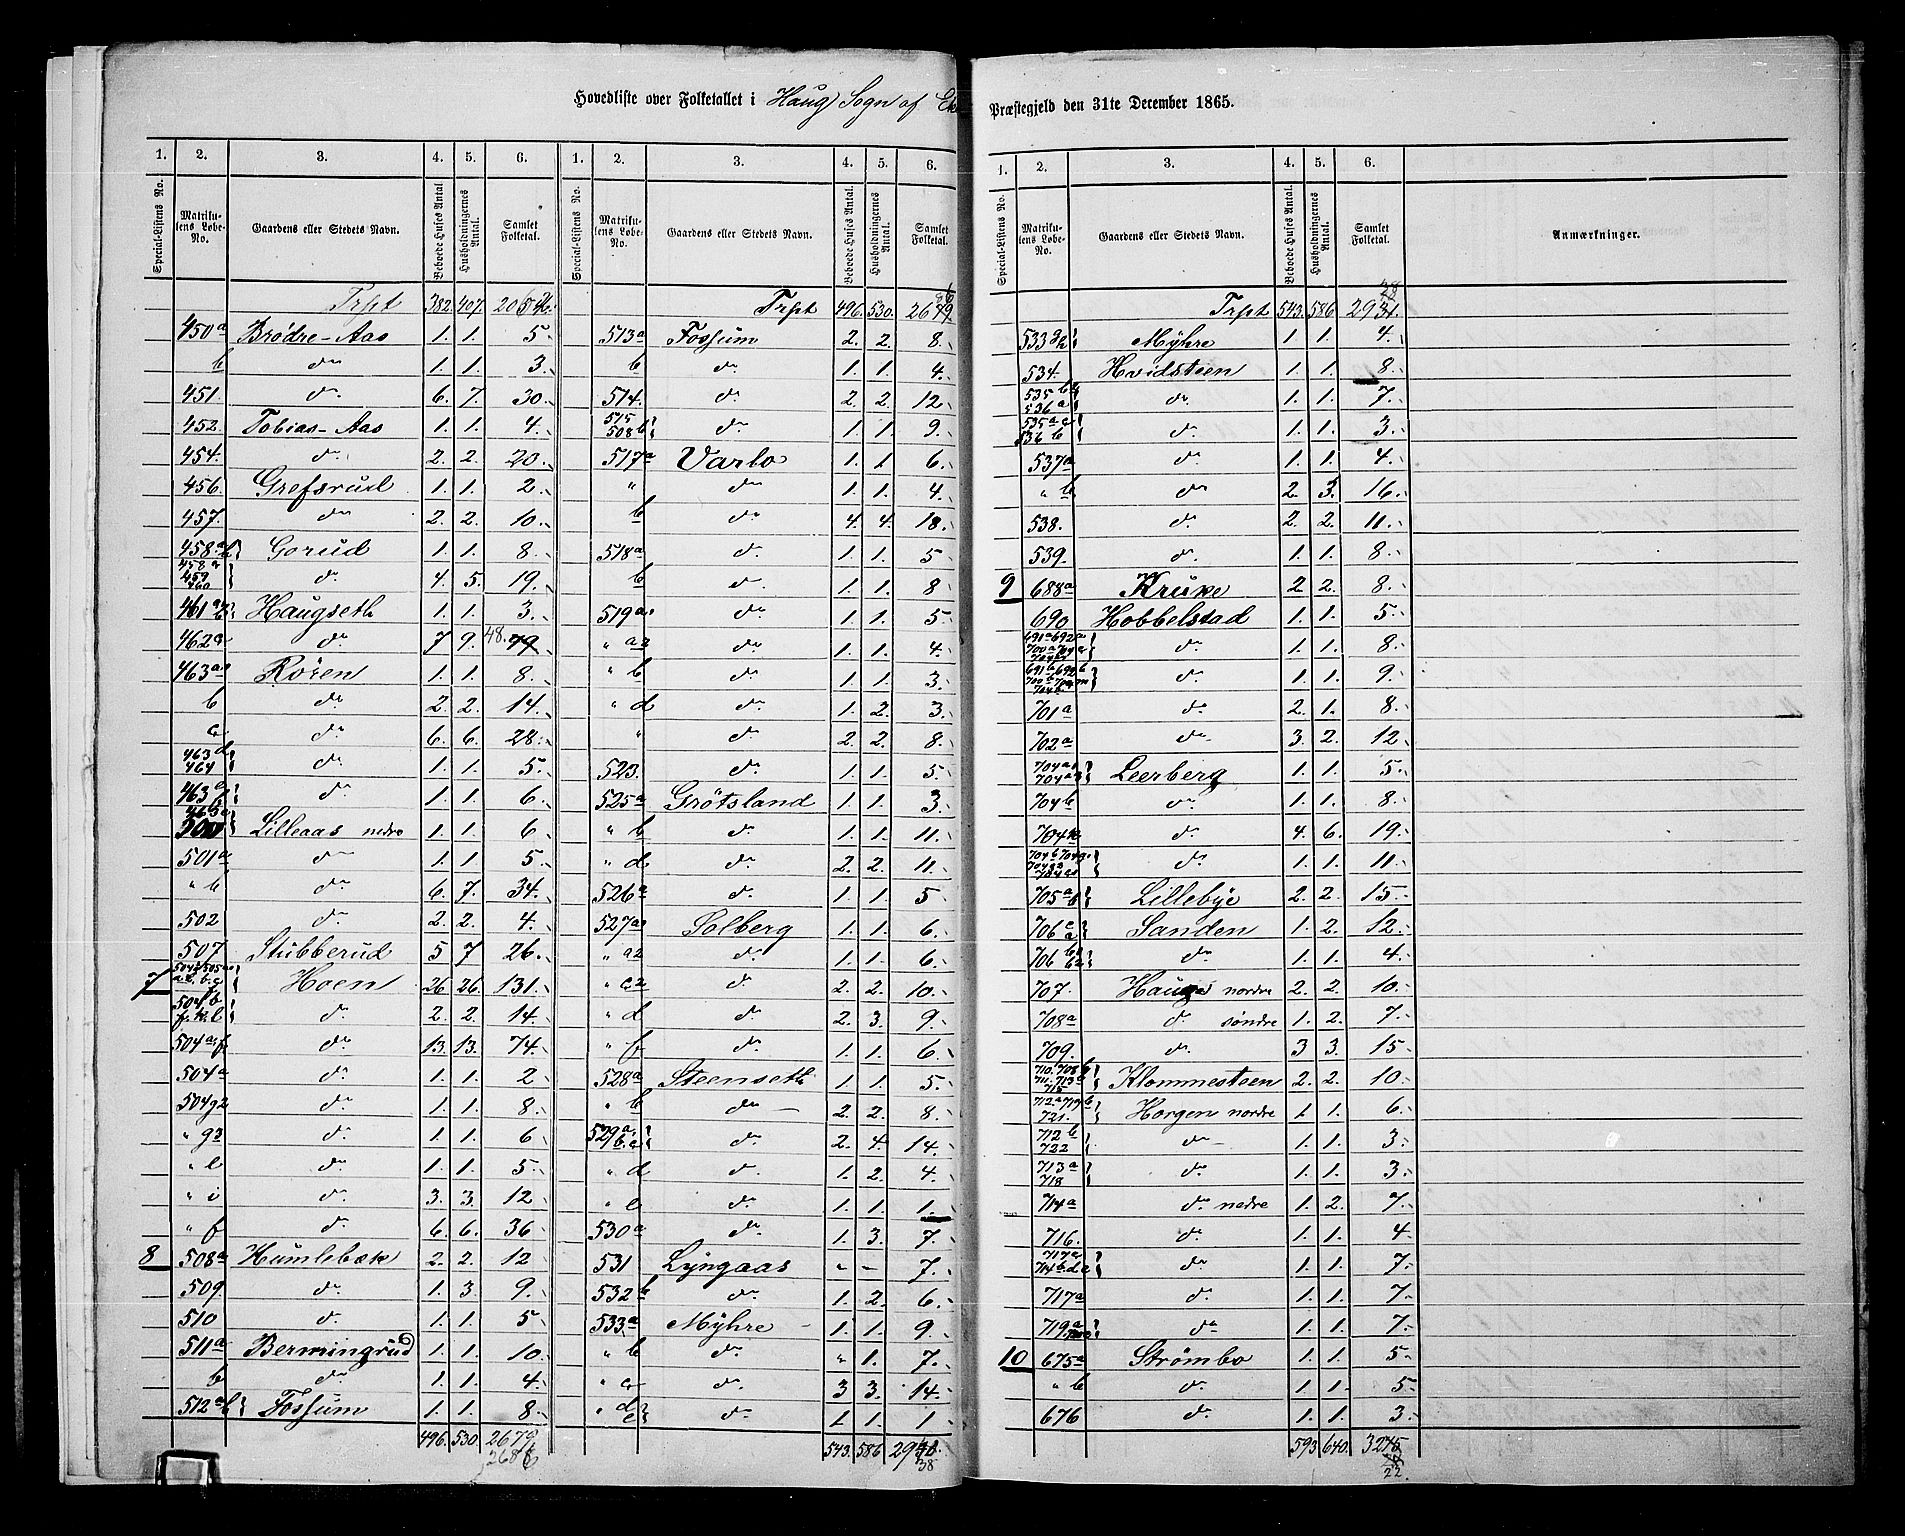 Hovedliste over Folketallet i Haug Sogn af
Præstegjeld den 31te December 1865.
1. 2. 3. 4. 5. 6.
Special-Listens No. Matrikulens Løbe-No. Gaardens eller Stedets Navn. Beboede Huses Antal. Husholdningernes Antal. Samlet Folketal.
Trpt 382. 407.
450a Brødre-Aas 1. 1. 5.
b do 1. 1. 3.
451. do 6. 7. 30.
452. Tobias-Aas 1. 1. 4.
454. do 2. 2. 20.
456. Grefsrud 1. 1. 2.
457. do 2. 2. 10.
458a b Gorud 1. 1. 8.
458a 459 460 do 4. 5. 19.
461 Haugseth 1. 1. 3.
462a do 7 9. 48.
463a Rören 1. 1. 8.
b do 2. 2. 14.
c do 6. 6. 28.
463d 464 do 1. 1. 5.
463 do 1. 1. 6.
Lilleaas nedre 1. 1. 6.
501a do 1. 1. 5.
" b do 6. 7. 34.
502 do 2. 2. 4.
507 Stubberud 5 7 26.
7 Hoen 26. 26. 131.
504 do 2. 2. 14.
504 do 13. 13. 74.
504a do 1. 1. 2
504g2 do 1. 1. 8.
" g3 do 1. 1. 6
" l do 1. 1. 5.
" i do 3. 3. 12
" f do 6. 6. 36
8 508a Humlebæk 2. 2. 12
509 do 1. 3. 9.
510 do 1. 1. 5
511a Bermingrud 1. 1. 10.
b do 1. 1. 4.
512a b Fossum 1. 1. 8.
496. 530. 2679
268
1. 2. 3. 4. 5. 6.
Special-Listens No. Matrikulens Løbe-No. Gaardens eller Stedets Navn. Beboede Huses Antal. Husholdningernes Antal. Samlet Folketal.
Trpt 496. 530.
513a Fossum 2. 2. 8.
b do 1. 1. 4.
514. do 2. 2. 12
515 508b do 1. 1. 9.
517a Varlo 1. 1 6.
" do 1. 1. 4.
b do 4. 4. 18.
518a do 1. 1. 5
b do 1. 1. 8
519a do 1. 1. 5.
" a2 do 1. 1. 4.
" b do 1. 1. 3.
" d do 1. 2. 3.
" do 2. 2. 8.
523. do 1. 1. 5.
525a Grötsland 1. 1. 3.
" b do 1. 1. 11.
" d do 2. 2. 11.
526a do 1. 1. 5
527a Solberg 1. 1. 6.
" a2 do 1. 1. 6.
" c2 do 2. 2. 10.
" d do 2. 3. 9.
" f do 1. 1. 6.
528a Steenseth 1. 1. 5.
" b do 2. 2. 8.
529a b.c do 2. 4. 14.
" d do 1. 2. 4.
" e do 1. 1. 1.
530a do 1. 3. 7.
531 Lyngaas " - 7.
532b do 1. 2. 6.
533a Myhre 1. 1. 9.
" b do " 1. 7.
" c do 3 3. 14.
" d e do 1. 1. 1
543. 586
38
1. 2. 3. 4. 5. 6.
Special-Listens No. Matrikulens Løbe-No. Gaardens eller Stedets Navn. Beboede Huses Antal. Husholdningernes Antal. Samlet Folketal. Anmærkninger.
Trpt 543. 586
533 Myhre 1. 1. 4.
534. Hvidsteen 1. 1. 8.
535b 536a do 1. 1. 7.
535a c 536b do 1. 1. 3.
537a do 1. 1. 4.
" b do 2. 3. 16.
538. do 2. 2. 11.
539. do 1. 1. 8.
9 688a Kruke 2. 2. 8.
690 Hobbelstad 1. 1. 5.
691a 692a do 1. 1. 8.
691b 692b do 1. 1. 9.
701a do 2. 1. 8.
702a do 3. 2. 12
704a1 704a3 Leerberg 1. 1. 5.
704b do 1. 1. 8.
704k do 4. 6. 19.
do 1. 1. 11.
705a b Lillebye 2. 2. 15.
706a Sanden 1. 2. 12.
706b b2 do 1. 1. 4.
707. Hauge nordre 2. 2. 10.
708a do søndre 1. 2. 7.
709. do 3 3. 15
Klommesteen 2. 2. 10
712a 721. Horgen nordre 1. 1. 6.
712b 722 do 1. 1. 3.
713a 718 do 1. 1. 3.
714a do nedre 1. 2. 7.
716. do 1. 1. 4
717a do 1. 1. 7.
717a do 1. 1. 7
719a do 1. 1. 7.
10 675a Strømbo 1. 1. 5
" b do 1. 1. 5.
676 do 1. 1. 3.
593 640.
22.